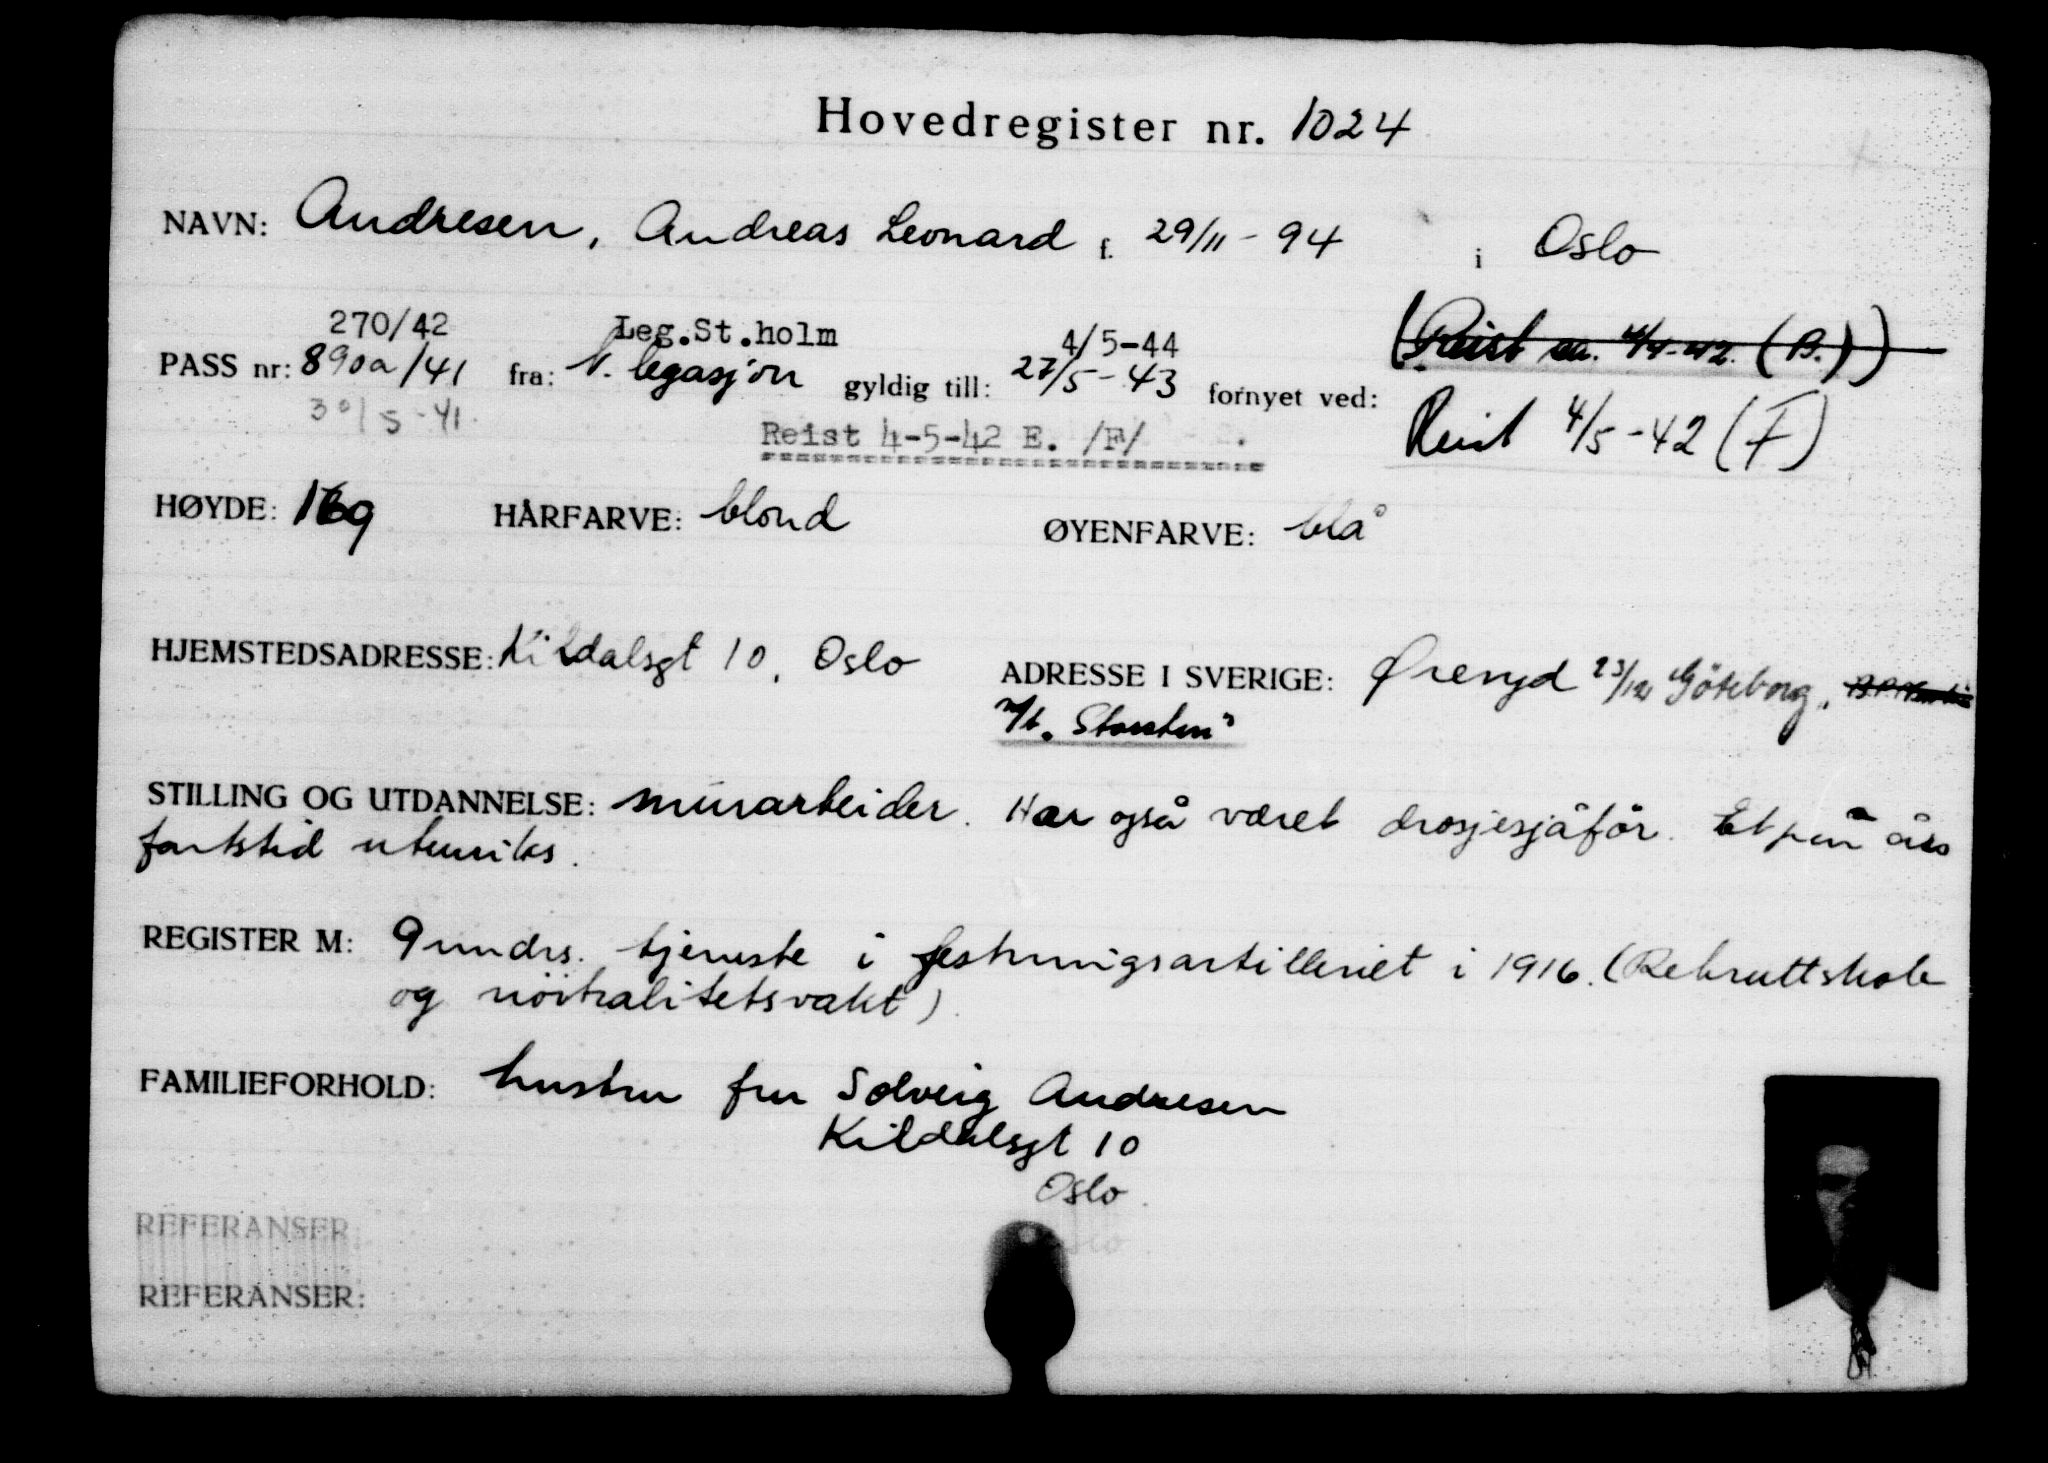 Hovedregister nr. 1024
NAVN: Andresen, Andreas Leonard f. 29/11 - 94 i Oslo
270/42 Leg.St.holm 4/5-44
PASS nr: 890a/41 fra: N. legasjon gyldig till: 27/5 - 43 fornyet ved: Reist 4/5 - 42 (F)
30/5 - 41.
Reist 4-5-42 E. /F/
HØYDE: 169 HÅRFARVE: blond ØYENFARVE: blå
HJEMSTEDSADRESSE: Kildalsgt 10, Oslo ADRESSE I SVERIGE: Øreryd 23/12 Göteborg.
M/t. "Storsten"
STILLING OG UTDANNELSE: murarbeider. Har også været drosjesjåför. Et par års
fartstid utenriks.
REGISTER M: 9 mndrs. tjeneste i festningsartilleriet i 1916. (Rekruttskole
og nöitralitetsvakt)
FAMILIEFORHOLD: hustru fru Solveig Andresen
Kildalsgt 10
Oslo.
REFERANSER:
REFERANSER: